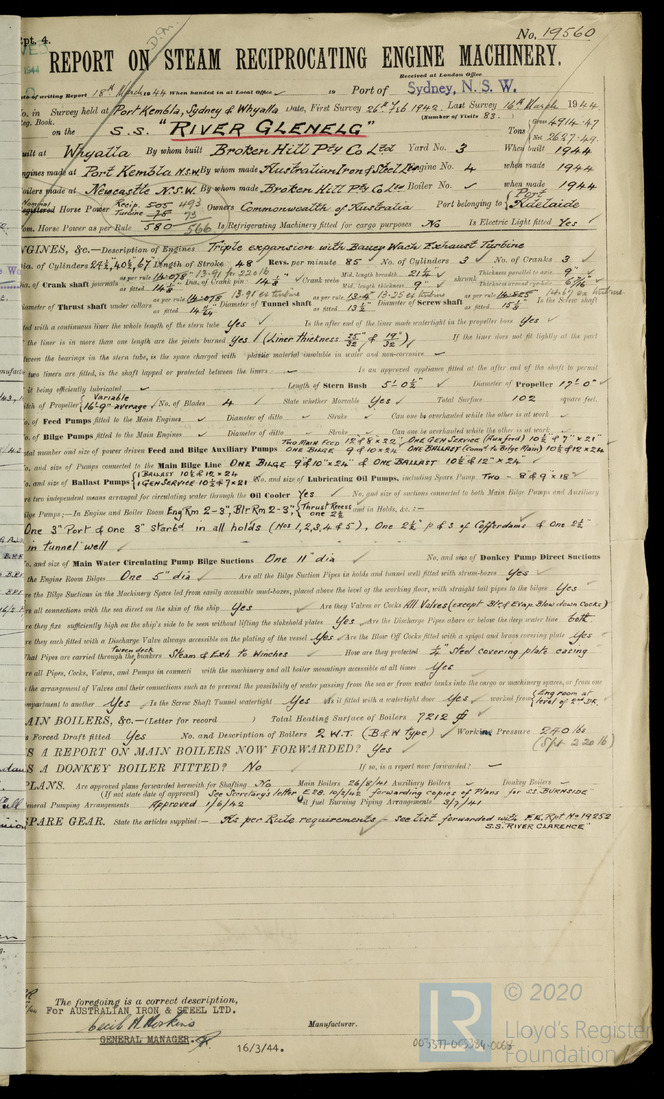 Rpt. 4.
No. 19560
REPORT ON STEAM RECIPROCATING ENGINE MACHINERY.
Received at London Office
of writing Report 18th March 1944 When handed in at Local Office 19 Port of Sydney, N. S. W.
in Survey held at Port Kembla, Sydney & Whyalla Date, First Survey 26th Feb 1942. Last Survey 16th March 1944
Reg. Book. (Number of Visits 83.)
on the S.S. "RIVER GLENELG" Tons Gross 4914.47 Net 2647.49
built at Whyalla By whom built Broken Hill Pty Co Ltd Yard No. 3 When built 1944
Engines made at Port Kembla N.S.W. By whom made Australian Iron & Steel Ltd Engine No. 4 when made 1944
Boilers made at Newcastle N.S.W. By whom made Broken Hill Pty Co Ltd Boiler No. when made 1944
Registered Horse Power Recip. 505 493 Turbine 75 73 Owners Commonwealth of Australia Port belonging to Port Adelaide
Nom. Horse Power as per Rule 580 566 Is Refrigerating Machinery fitted for cargo purposes No Is Electric Light fitted Yes
ENGINES, &c.—Description of Engines Triple expansion with Bauer Wach Exhaust Turbine
Dia. of Cylinders 24½, 40½, 67 Length of Stroke 48 Revs. per minute 85 No. of Cylinders 3 No. of Cranks 3
Dia. of Crank shaft journals as per rule 14.078 13.91 for 220 lb as fitted 14⅛" Dia. of Crank pin 14⅛" Crank webs Mid. length breadth 21¼" Mid. length thickness 9" shrunk Thickness parallel to axis 9" Thickness around eyehole 6 7/16"
Diameter of Thrust shaft under collars as per rule 14.078 13.91 as fitted Diameter of Tunnel shaft as per rule 13.4 13.25 as fitted 13½ Diameter of Screw shaft as per rule as fitted Is the Screw shaft
fitted with a continuous liner the whole length of the stern tube Yes Is the after end of the liner made watertight in the propeller boss Yes
If the liner is in more than one length are the joints burned Yes (Liner thickness 25/32" & 19/32") If the liner does not fit tightly at the part
between the bearings in the stern tube, is the space charged with a plastic material insoluble in water and non-corrosive
two liners are fitted, is the shaft lapped or protected between the liners Is an approved appliance fitted at the after end of the shaft to permit
it being efficiently lubricated Length of Stern Bush 5'-0½" Diameter of Propeller 17'-0"
Pitch of Propeller Variable 16'-9" average No. of Blades 4 State whether Moveable Yes Total Surface 102 square feet.
No. of Feed Pumps fitted to the Main Engines Diameter of ditto Stroke Can one be overhauled while the other is at work
No. of Bilge Pumps fitted to the Main Engines Diameter of ditto Stroke Can one be overhauled while the other is at work
Total number and size of power driven Feed and Bilge Auxiliary Pumps Two Main Feed 12 & 8 x 22" One Gen Service (Aux feed) 10½ & 7" x 21"
One Bilge 9 & 10 x 24 One Ballast (Conn. to Bilge Main) 10½ & 12 x 24
No. and size of Pumps connected to the Main Bilge Line One Bilge 9 & 10 x 24" & One Ballast 10½ & 12" x 24"
No. and size of Ballast Pumps 1 Ballast 10½ & 12 x 24 1 Gen Service 10½ & 7 x 21 No. and size of Lubricating Oil Pumps, including Spare Pump Two - 8 & 9 x 18"
Are two independent means arranged for circulating water through the Oil Cooler Yes No. and size of suctions connected to both Main Bilge Pumps and Auxiliary
Bilge Pumps;—In Engine and Boiler Room Eng Rm 2-3", Blr Rm 2-3", Thrust Recess one 2½ and in Holds, &c. :—
One 3" Port & one 3" Starbd in all holds (Nos 1, 2, 3, 4 & 5), One 2½" p & s of Cofferdams & One 2½"
in tunnel well
No. and size of Main Water Circulating Pump Bilge Suctions One 11" dia No. and size of Donkey Pump Direct Suctions
the Engine Room Bilges One 5" dia Are all the Bilge Suction Pipes in holds and tunnel well fitted with strum-boxes Yes
Are the Bilge Suctions in the Machinery Space led from easily accessible mud-boxes, placed above the level of the working floor, with straight tail pipes to the bilges Yes
Are all connections with the sea direct on the skin of the ship Yes Are they Valves or Cocks All Valves (except Blr & Evap. Blow down Cocks)
Are they fixed sufficiently high on the ship's side to be seen without lifting the stokehold plates Yes Are the Discharge Pipes above or below the deep water line both
Are they each fitted with a Discharge Valve always accessible on the plating of the vessel Yes Are the Blow Off Cocks fitted with a spigot and brass covering plate Yes
What Pipes are carried through the tween deck bunkers Steam & Exh. to Winches How are they protected ¼" Steel covering plate casing
Are all Pipes, Cocks, Valves, and Pumps in connection with the machinery and all boiler mountings accessible at all times Yes
the arrangement of Valves and their connections such as to prevent the possibility of water passing from the sea or from water tanks into the cargo or machinery spaces, or from one
compartment to another Yes Is the Screw Shaft Tunnel watertight Yes Is it fitted with a watertight door Yes worked from Eng room at level of 2nd Dk.
MAIN BOILERS, &c.—(Letter for record ) Total Heating Surface of Boilers 7212
Is Forced Draft fitted Yes No. and Description of Boilers 2 W.T. (B & W Type) Working Pressure 240 lbs
(Spt 220 lb)
IS A REPORT ON MAIN BOILERS NOW FORWARDED? Yes
IS A DONKEY BOILER FITTED? No If so, is a report now forwarded?
PLANS. Are approved plans forwarded herewith for Shafting No Main Boilers 26/8/41 Auxiliary Boilers Donkey Boilers
(If not state date of approval) See Secretary's letter E28. 10/2/42 forwarding copies of Plans for S.S. BURNSIDE
General Pumping Arrangements Approved 1/6/42 Oil fuel Burning Piping Arrangements 3/7/41
SPARE GEAR. State the articles supplied:— As per Rule requirements - see list forwarded with F.E. Rpt No 19252
S.S. "RIVER CLARENCE"
The foregoing is a correct description,
For AUSTRALIAN IRON & STEEL LTD.
Cecil H. Hoskins
Manufacturer.
GENERAL MANAGER.
16/3/44.
003377-003384-0068
LR
© 2020
Lloyd's Register
Foundation